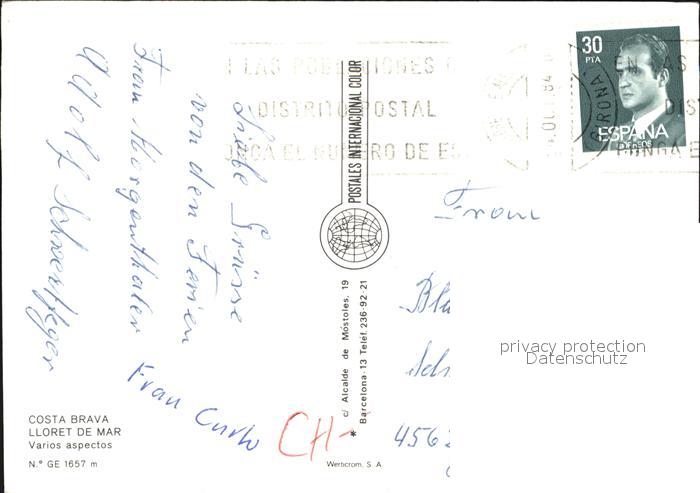 Liebe Grüsse
von den Ferien
Frau Morgenthaler
Adolf
Frau
POSTALES INTERNACIONAL COLOR
c/ Alcalde de Móstoles, 19
Barcelona-13 Teléf. 236-92 21
Werticrom, S. A.
COSTA BRAVA
LLORET DE MAR
Varios aspectos
N.° GE 1657 m
CH-
30
PTA
ESPAÑA
CORREOS
LAS POBLACIONES
DISTRITO POSTAL
PONGA EL NUMERO DE
EN LAS
DIS
PONGA E
GERONA
Frau
Blu
Sch
456
privacy protection
Datenschutz